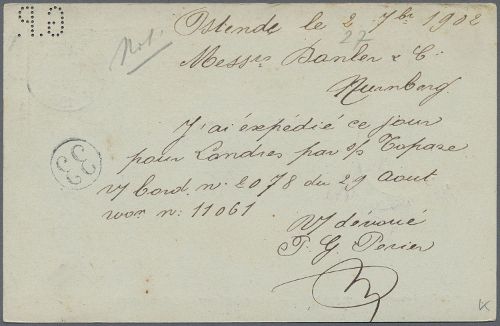 G.P.
Not.
Ostende le 2 7bre 1902
27
Messrs Danler & Cie
Nurnberg
J'ai éxpédié ce jour
pour Londres par s/s Topaze
V/ bord. n: 2078 du 29 Aout
n: 11061
33
V/ dévoué
P. G. Perier
K